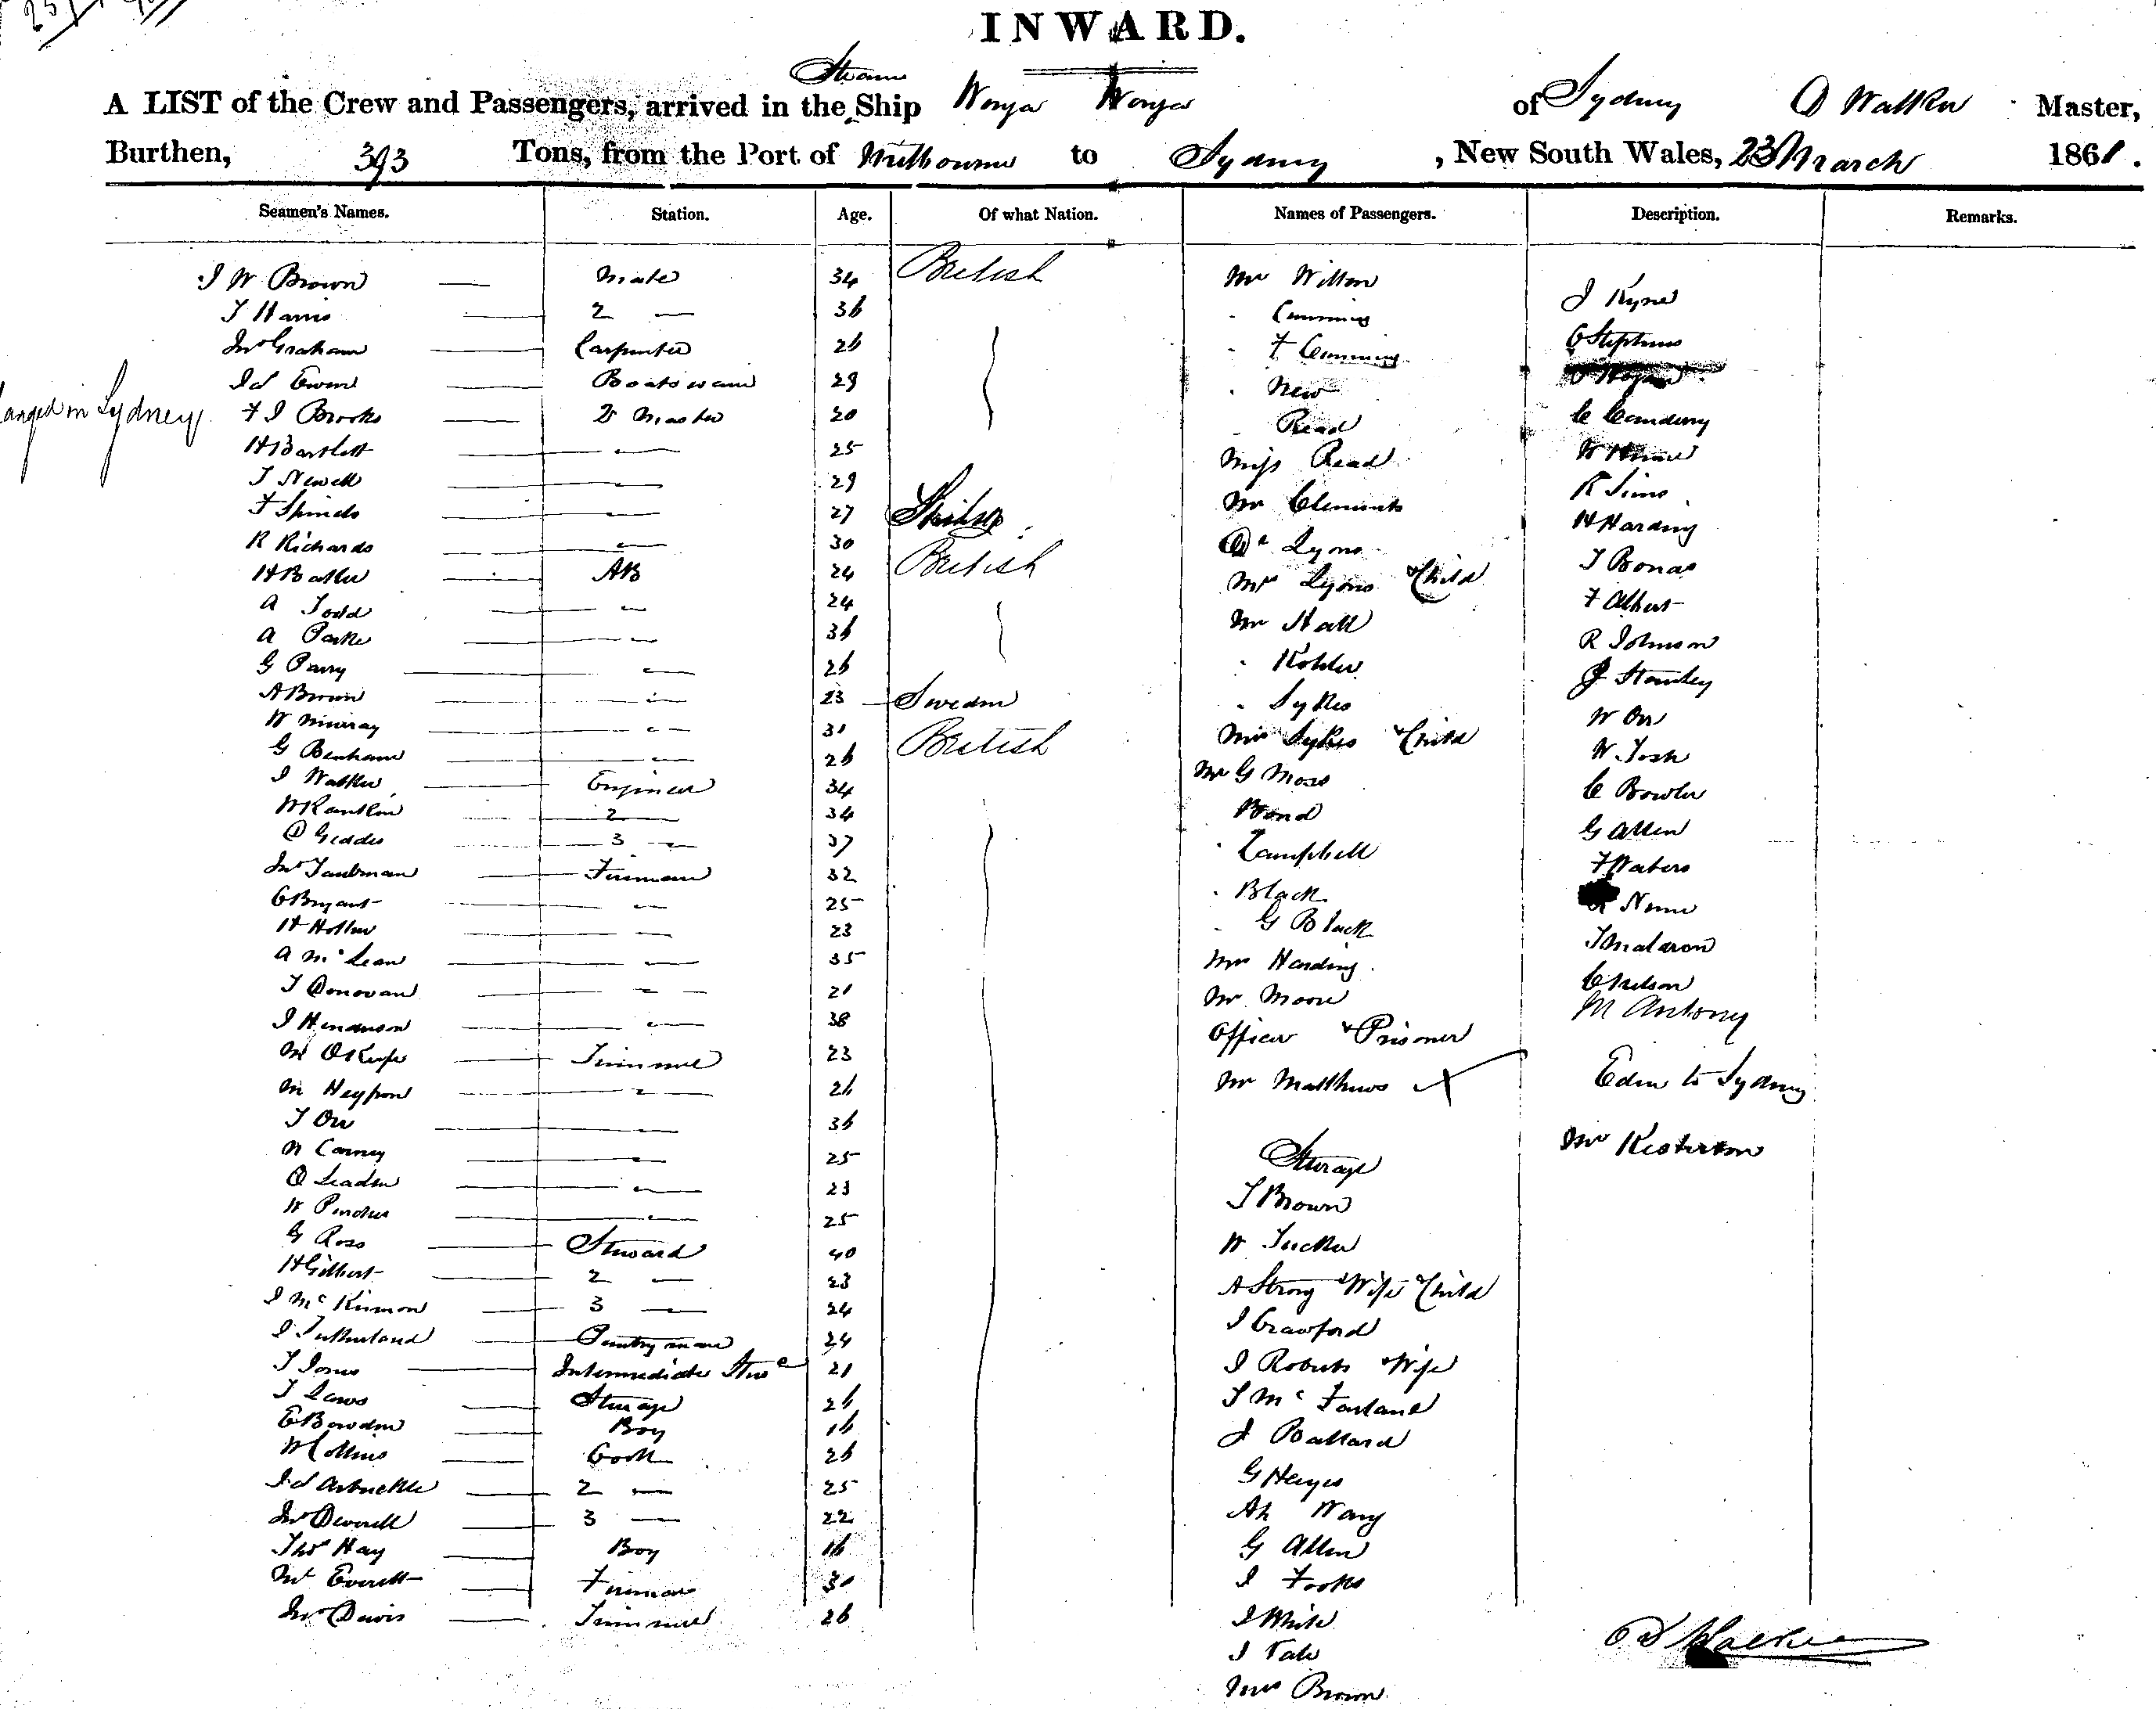 INWARD.
Steam
A LIST of the Crew and Passengers, arrived in the Ship Wonga Wonga of Sydney D Walker Master,
Burthen, 393 Tons, from the Port of Melbourne to Sydney, New South Wales, 23 March 1861.
Seamen's Names. Station. Age. Of what Nation. Names of Passengers. Description. Remarks.
J W Brown — Mate 34 British
T Harris — 2 — 36
Jno Graham — Carpenter 26
Jas Ewen — Boatswain 29
in Sydney.
F J Brooks — Qr Master 20
H Bartlett — " — 25
T Newell — " — 29
F Spinds — " — 27
R Richards — " — 30 British
H Butler — AB 24
A Todd — " — 24
A Parke — " — 36
G Parry — " — 26
A Brown — " — 23 — Sweden
W Murray — " — 31 British
G Benham — " — 26
J Walker — Engineer 34
W Rankin — 2 — 34
D Geddes — 3 — 37
Jno Taubman — Fireman 32
G Bryant — " — 25
H Hollow — " — 23
A McLean — " — 35
T Donovan — " — 21
J Henderson — " — 38
M OKeefe — Trimmer 23
M Heypon — " — 26
T Orr — " — 36
N Carney — " — 25
D Leaden — " — 23
W Pincher — " — 25
G Ross — Steward 40
H Gilbert — 2 — 23
J McKinnon — 3 — 24
J Sutherland — Pantryman 24
T Jones — Intermediate Stwd 21
T Laws — Steerage 26
E Bowden — Boy 16
W Collins — Cook 26
Jas Arbuckle — 2 — 25
Jno Deverell — 3 — 22
Thos Hay — Boy 16
Wm Everett — Fireman 30
Jno Davis — Trimmer 26
Mr Wilton
" Cumming
" F Cumming
" New
" Read
Miss Read
Mr Clements
Dr Lyons
Mrs Lyons & Child
Mr Hall
" Kohler
" Sykes
Mrs Sykes & Child
Mr G Moss
Bond
" Campbell
" Black
" G Black
Mrs Harding
Mr Moore
Officer & Prisoner
Mr Matthews X
Steerage
T Brown
W Tucker
A Strong & Wife & Child
J Crawford
J Roberts & Wife
T McFarland
J Ballard
G Heyes
Ah Wang
G Allen
J Fooks
J White
J Tate
Mrs Brown
J Kyne
G Stephens
Hogan
C Camdeny
W Hume
R Sims
H Harding
T Bonas
F Albert
R Johnson
J Stanley
W Orr
W Tosh
C Bowler
G Allen
F Waters
Nunn
T Malaron
C Nelson
M Antony
Eden to Sydney
Mr Kesterton
D Walker